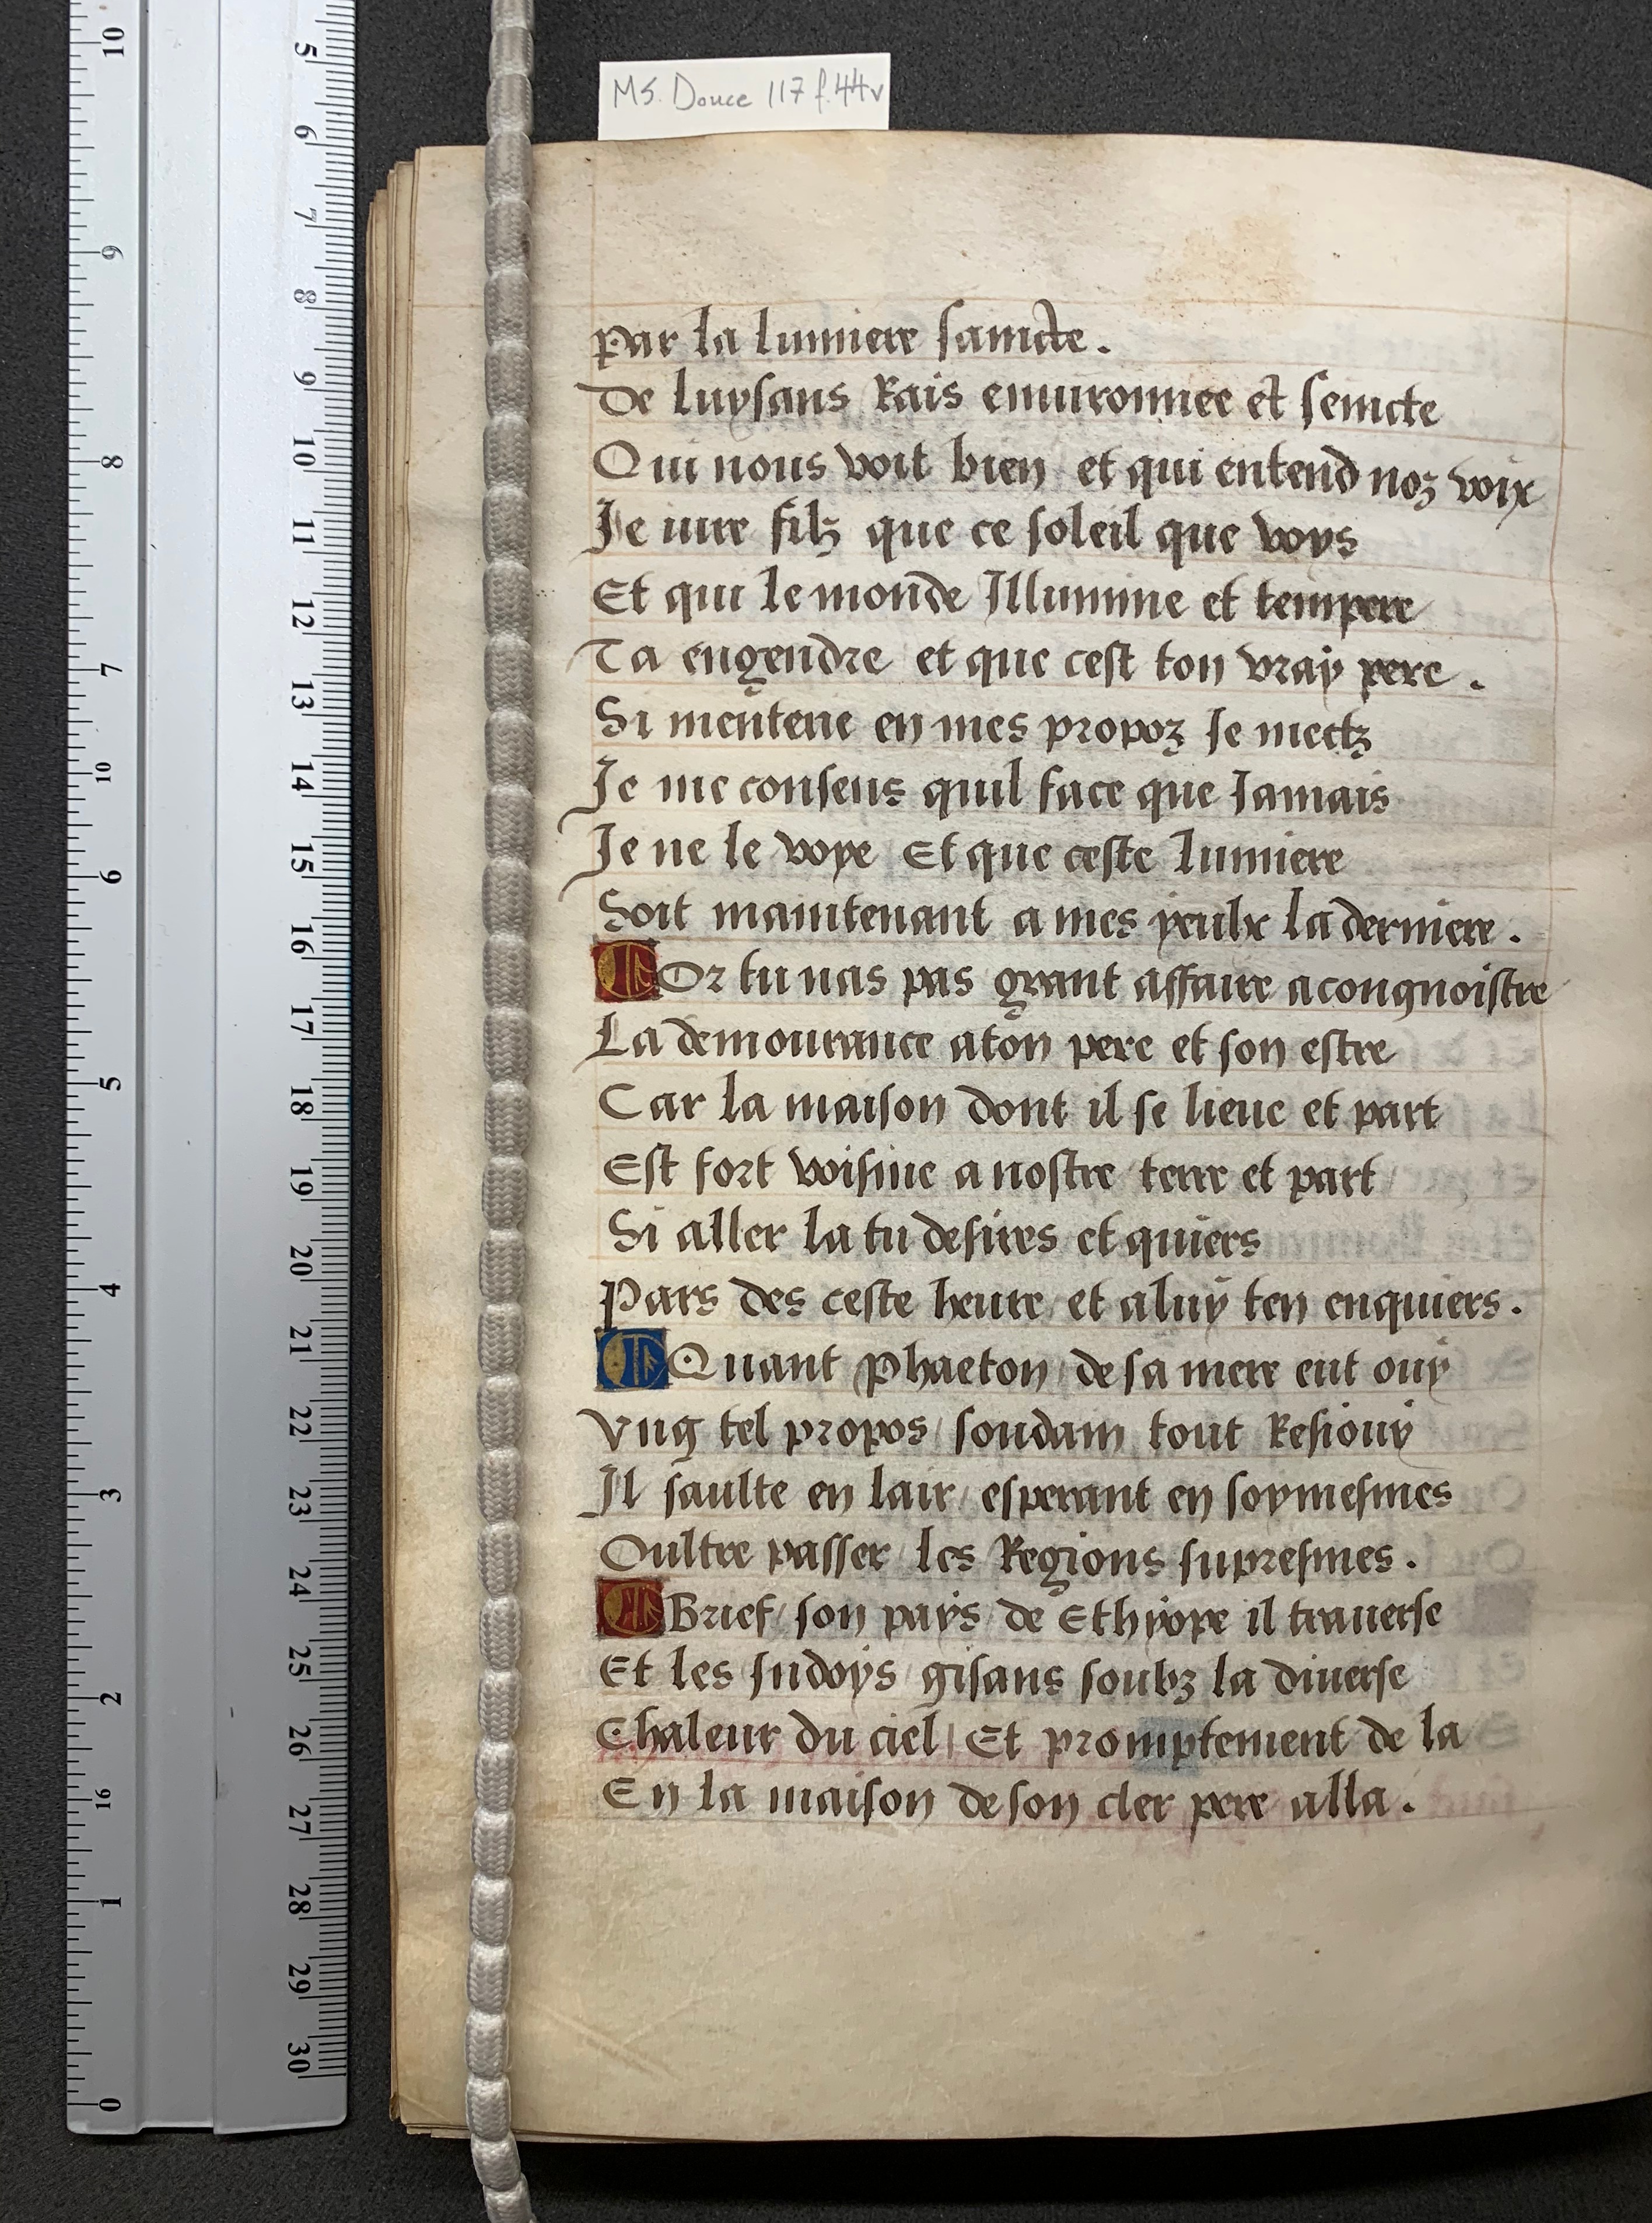 MS. Douce 117 f.44v
par la lumiere saincte.
De luysans Rais enuironnee et seincte
Qui nous voit bien et qui entend noz voix
Je iure filz que ce soleil que voys
Et qui le monde Illumine et tempere
Ta engendre et que cest ton vray pere.
Si menterie en mes propoz Je mectz
Je me consens quil face que Jamais
Je ne le voye Et que ceste lumiere
Soit maintenant a mes yeulx la derniere.
Or tu nas pas grant affaire a congnoistre
La demourance a ton pere et son estre
Car la maison dont il se lieue et part
Est fort voisine a nostre terre et part
Si aller la tu desires et quiers
Pars des ceste heure / et a luy ten enquiers.
Quant Phaeton / de sa mere eut ouy
Vng tel propos / soudain tout Resiouy
Il saulte en lair / esperant en soymesmes
Oultre passer les Regions supresmes.
Brief / son pays de Ethyope il trauerse
Et les Indoys / gisans soubz la diuerse
Chaleur du ciel / Et promptement de la
En la maison de son cler pere alla.
10
9
8
7
10
6
5
4
3
2
16
1
0
5
6
7
8
9
10
11
12
13
14
15
16
17
18
19
20
21
22
23
24
25
26
27
28
29
30